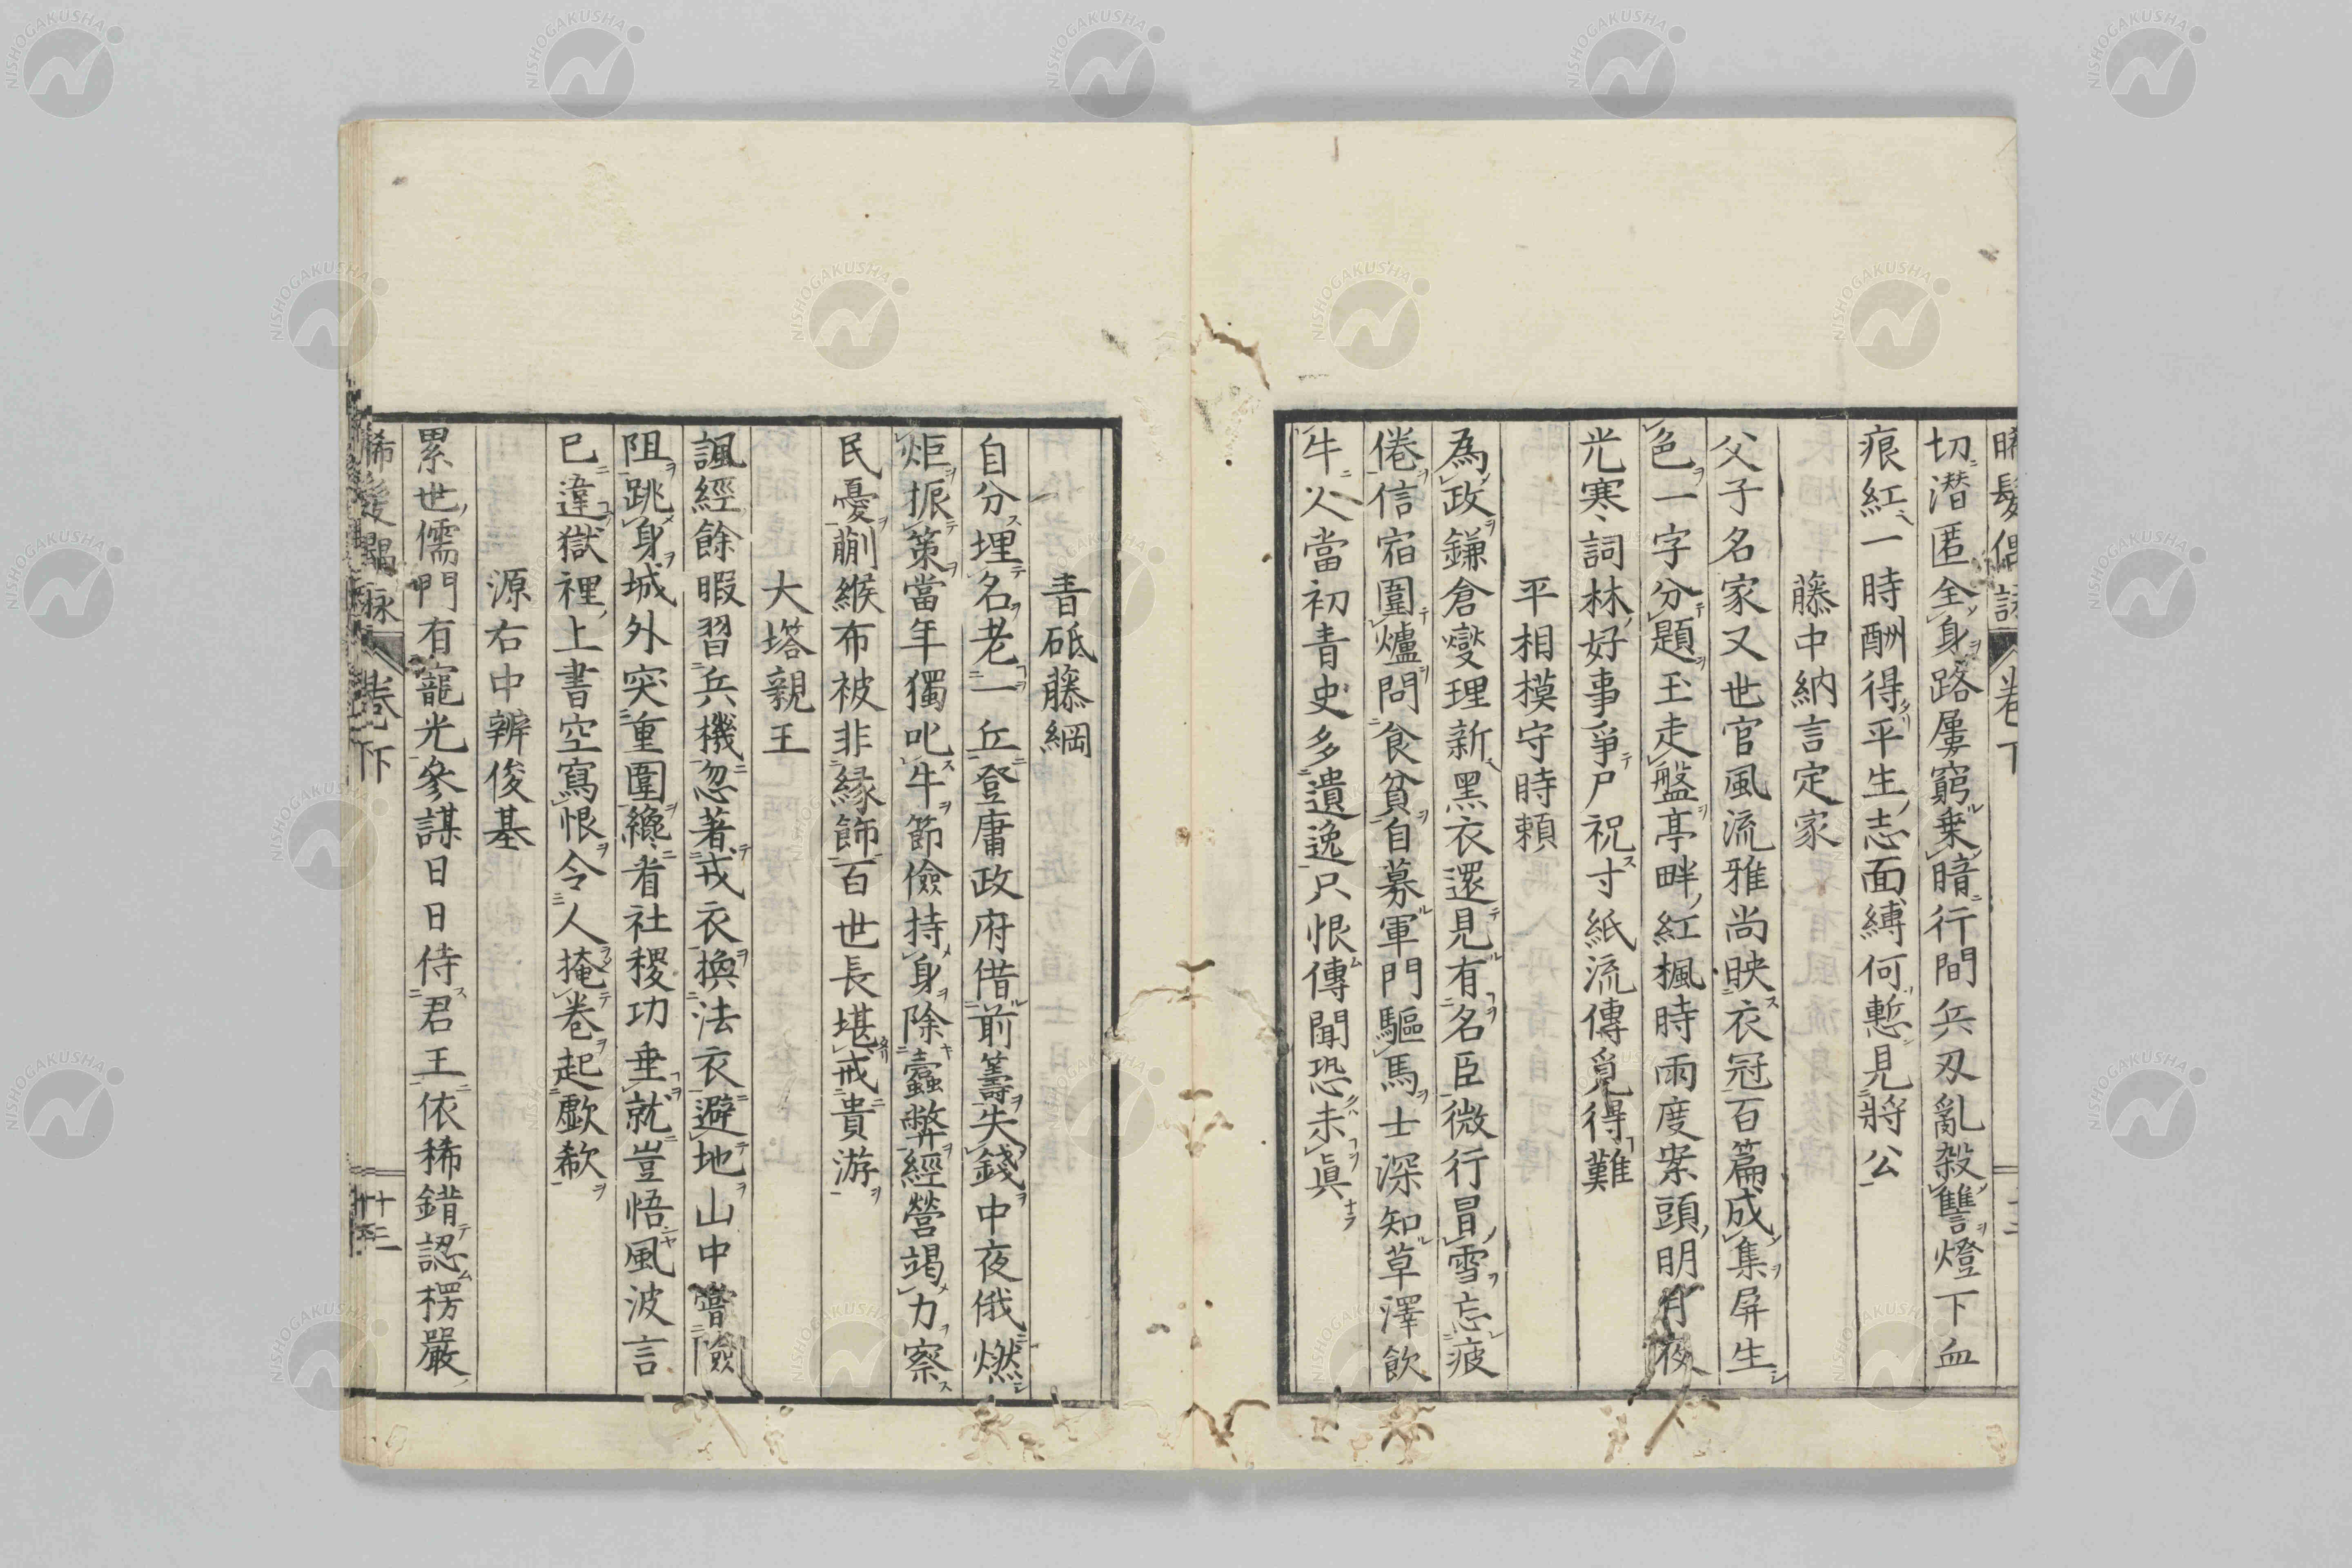 晞髮偶詠 卷下
切潛匿全身路屢窮乗暗行間兵刃亂殺讐燈下血
痕紅一時酬得平生志面縛何慙見將公
藤中納言定家
父子名家又世官風流雅尚映衣冠百篇成集屏生
色一字分題玉走盤亭畔紅楓時雨度案頭明月夜
光寒詞林好事爭尸祝寸紙流傳覓得難
平相摸守時頼
為政鎌倉燮理新黑衣還見有名臣微行冒雪忘疲
倦信宿圍爐問食貧自募軍門驅馬士深知草澤飲
牛人當初青史多遺逸只恨傳聞恐未眞
青砥藤綱
自分埋名老一丘登庸政府借前籌失錢中夜俄燃
炬振策當年獨叱牛節儉持身除蠹弊經營竭力察
民憂蒯緱布被非縁飾百世長堪戒貴游
大塔親王
諷經餘暇習兵機忽著戎衣換法衣避地山中嘗險
阻跳身城外突重圍纔看社稷功垂就豈悟風波言
已違獄裡上書空寫恨令人掩卷起歔欷
源右中辨俊基
累世儒門有寵光參謀日日侍君王依稀錯認楞嚴
晞髮偶詠 卷下 十二
NISHOGAKUSHA